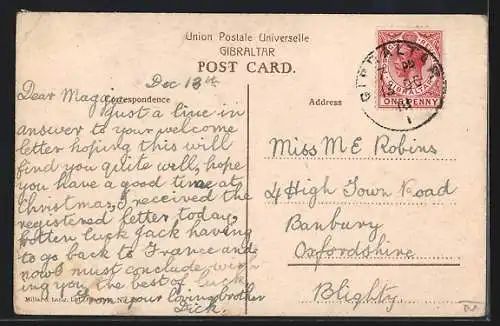 Union Postale Universelle
GIBRALTAR
POST CARD.
Dec 13th
Correspondence
Address
Dear Magaja
Just a line in
answer to your welcome
letter hoping this will
find you quite well, hope
you have a good time at
Christmas, I received the
registered letter today,
rotten luck Jack having
to go back to France and
now I must conclude wish-
ing you the best of luck
From your loving brother
Dick.
Miss M E Robins
4 High Town Road
Banbury
Oxfordshire
Blighty
GIBRALTAR
GIBRALTAR
ONE PENNY